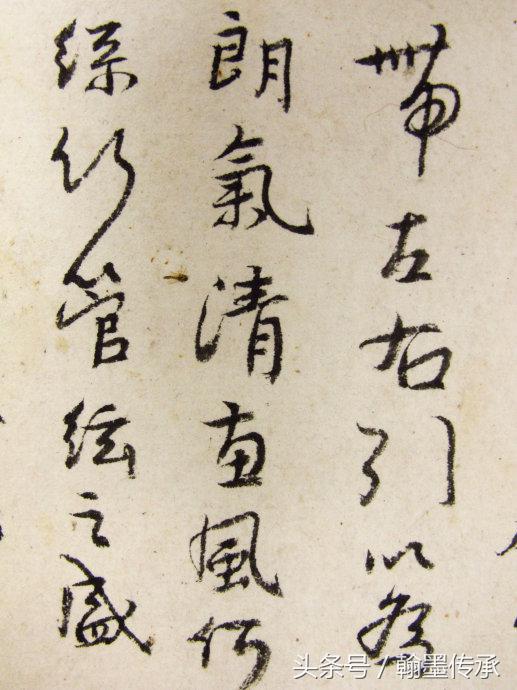 帶左右引以為
朗氣清惠風和
絲竹管絃之盛
头条号 / 翰墨传承